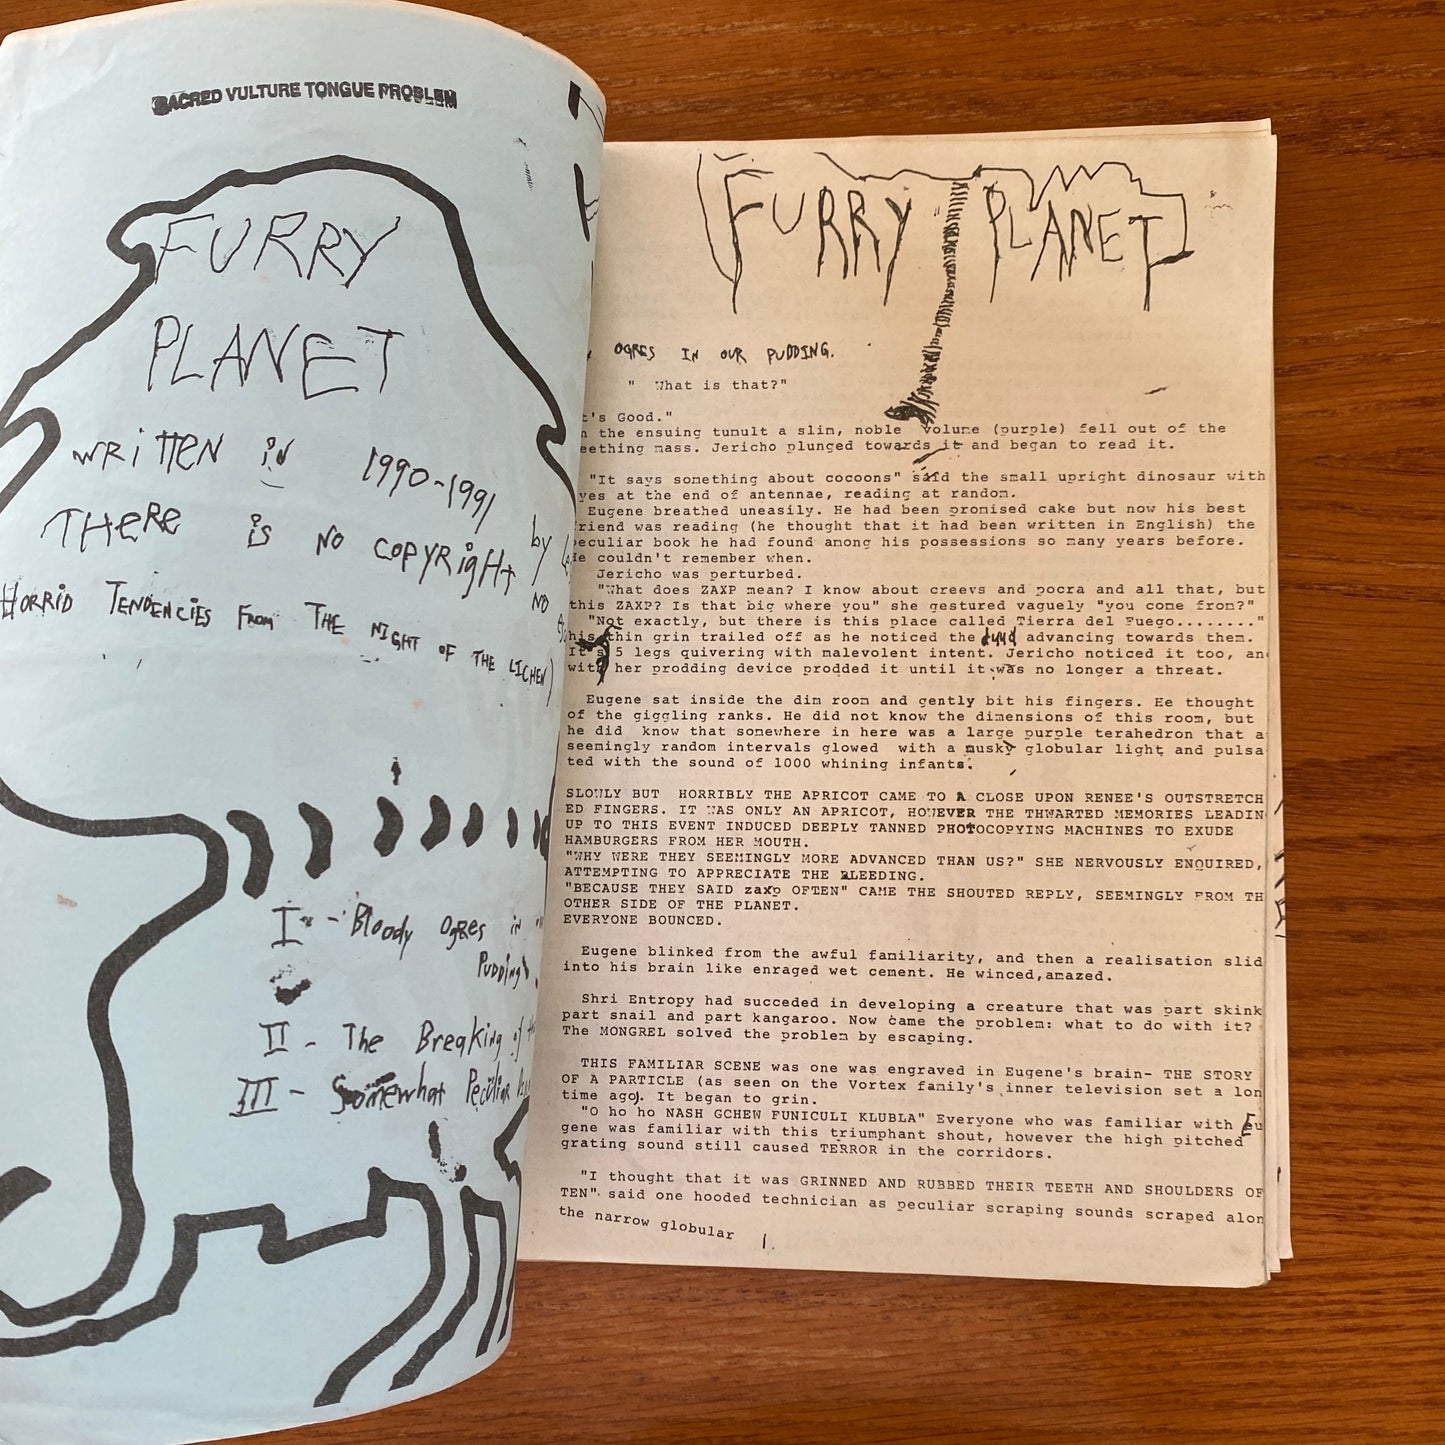 SACRED VULTURE TONGUE PROBLEM
FURRY
PLANET
WRiTTEN iN 1990-1991
THERE is NO COPYRIGHT by
HORRID TENDENCIES FROM THE NIGHT OF THE LICHEN)
NO
I - Bloody OgREs in
PUDDING
II - The Breaking of
III - Somewhat Peculiar
FURRY PLANET
OGRES IN OUR PUDDING.
" What is that?"
t's Good."
n the ensuing tumult a slim, noble volume (purple) fell out of the
eething mass. Jericho plunged towards it and began to read it.
"It says something about cocoons" said the small upright dinosaur with
yes at the end of antennae, reading at random.
Eugene breathed uneasily. He had been promised cake but now his best
riend was reading (he thought that it had been written in English) the
peculiar book he had found among his possessions so many years before.
He couldn't remember when.
Jericho was perturbed.
"What does ZAXP mean? I know about creevs and pocra and all that, but
this ZAXP? Is that big where you" she gestured vaguely "you come from?"
"Not exactly, but there is this place called Tierra del Fuego........"
his thin grin trailed off as he noticed the advancing towards them.
It's 5 legs quivering with malevolent intent. Jericho noticed it too, an
with her prodding device prodded it until it was no longer a threat.
Eugene sat inside the dim room and gently bit his fingers. He thought
of the giggling ranks. He did not know the dimensions of this room, but
he did know that somewhere in here was a large purple terahedron that a
seemingly random intervals glowed with a musky globular light and pulsa
ted with the sound of 1000 whining infants.
SLOWLY BUT HORRIBLY THE APRICOT CAME TO A CLOSE UPON RENEE'S OUTSTRETCH
ED FINGERS. IT WAS ONLY AN APRICOT, HOWEVER THE THWARTED MEMORIES LEADIN
UP TO THIS EVENT INDUCED DEEPLY TANNED PHOTOCOPYING MACHINES TO EXUDE
HAMBURGERS FROM HER MOUTH.
"WHY WERE THEY SEEMINGLY MORE ADVANCED THAN US?" SHE NERVOUSLY ENQUIRED,
ATTEMPTING TO APPRECIATE THE BLEEDING.
"BECAUSE THEY SAID zaxp OFTEN" CAME THE SHOUTED REPLY, SEEMINGLY FROM TH
OTHER SIDE OF THE PLANET.
EVERYONE BOUNCED.
Eugene blinked from the awful familiarity, and then a realisation slid
into his brain like enraged wet cement. He winced,amazed.
Shri Entropy had succeded in developing a creature that was part skink
part snail and part kangaroo. Now came the problem: what to do with it?
The MONGREL solved the problem by escaping.
THIS FAMILIAR SCENE was one was engraved in Eugene's brain- THE STORY
OF A PARTICLE (as seen on the Vortex family's inner television set a lon
time ago). It began to grin.
"O ho ho NASH GCHEW FUNICULI KLUBLA" Everyone who was familiar with Eu
gene was familiar with this triumphant shout, however the high pitched
grating sound still caused TERROR in the corridors.
"I thought that it was GRINNED AND RUBBED THEIR TEETH AND SHOULDERS OF
TEN" said one hooded technician as peculiar scraping sounds scraped alon
the narrow globular
1.